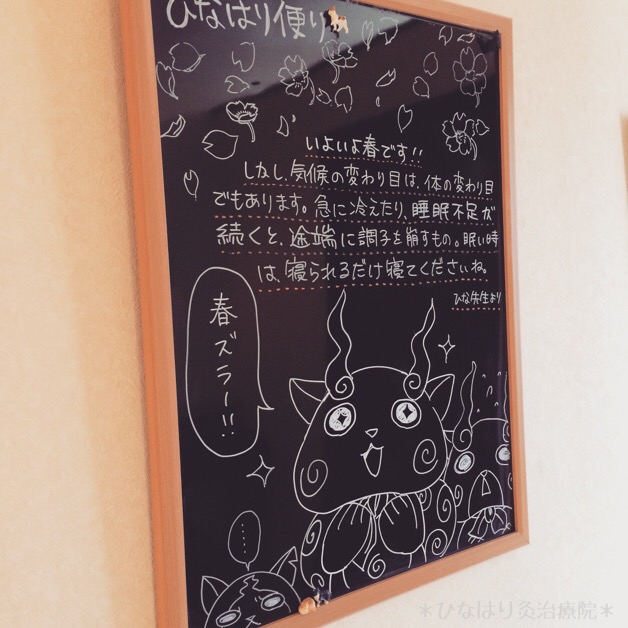 ひなはり便り
いよいよ春です!!
しかし、気候の変わり目は、体の変わり目
でもあります。急に冷えたり、睡眠不足が
続くと、途端に調子を崩すもの。眠い時
は、寝られるだけ寝てくださいね。
ひな先生より
春ズラー!!
……
*ひなはり灸治療院*